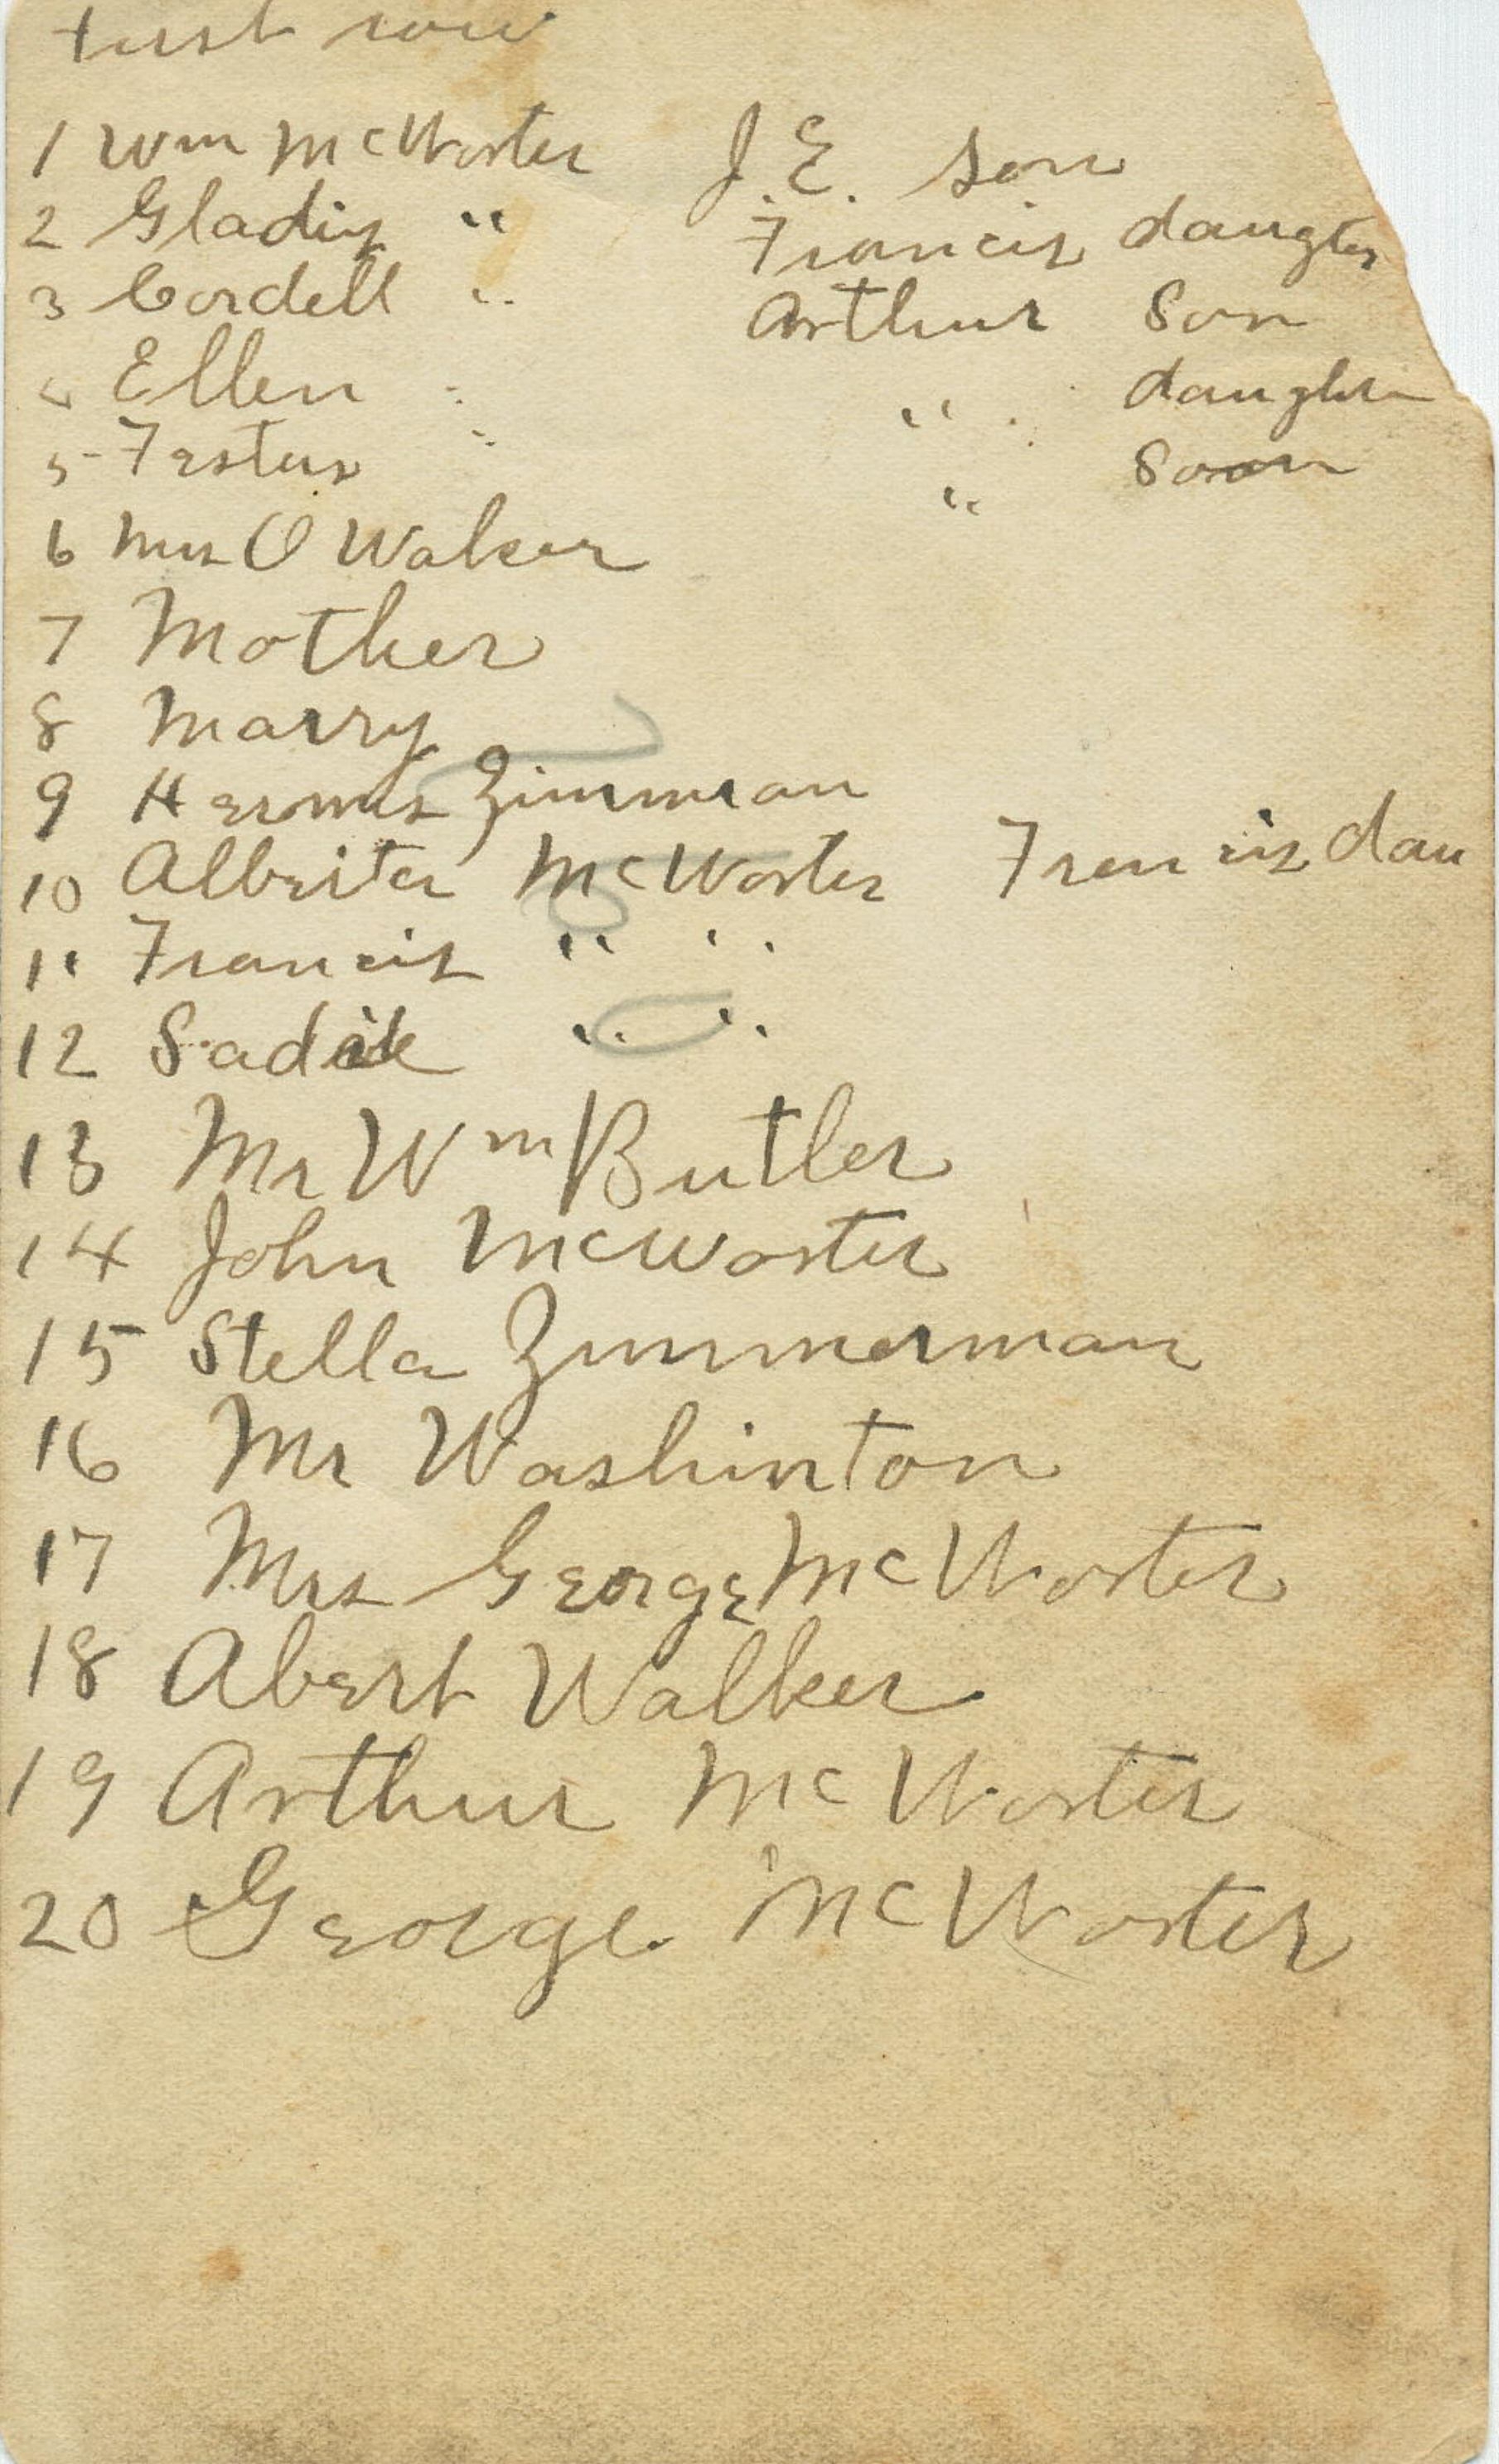 First row
1 Wm McWorter J.E. son
2 Gladis " Francis daugter
3 Cordell " Arthur Son
4 Ellen " " daughter
5 Festus " " Son
6 Mrs O Walker
7 Mother
8 Marry
9 Zimmman
10 Albreiter McWorter Francis dau
11 Francis " "
12 Sadie " "
13 Mr Wm Butler
14 John McWorter
15 Stella Zimmerman
16 Mr Washinton
17 Mrs George McWorter
18 Abert Walker
19 Arthur McWorter
20 George McWorter